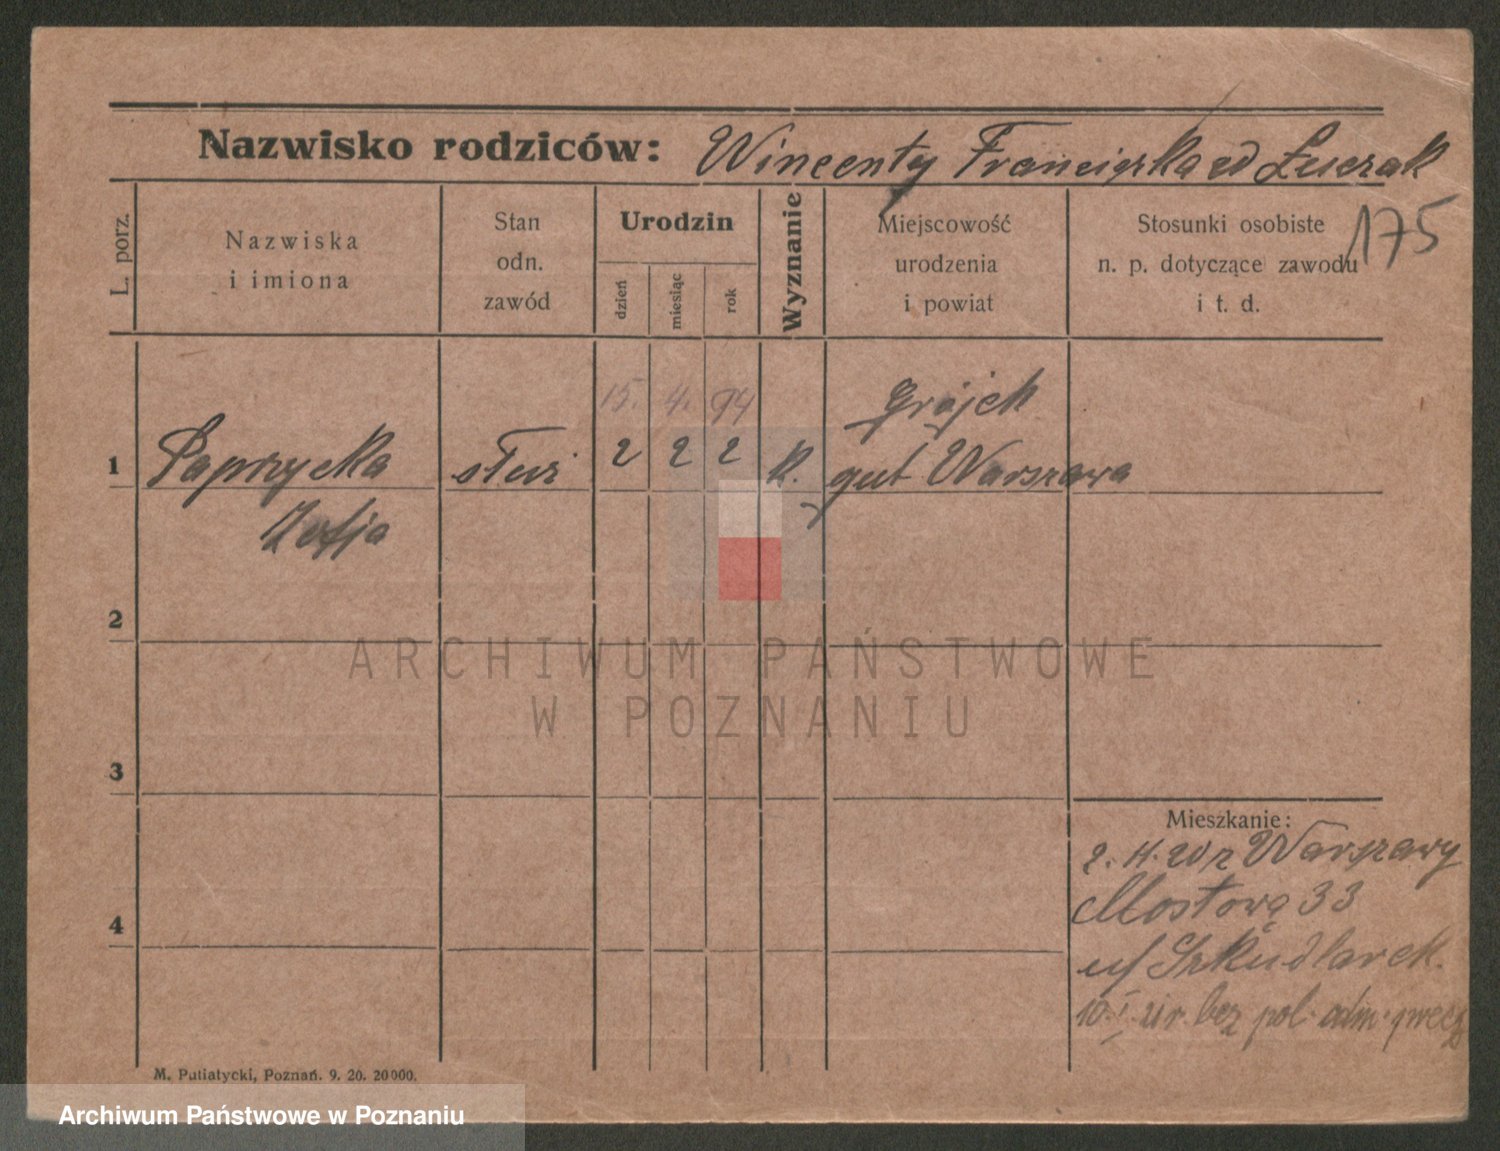 Nazwisko rodziców: Wincenty Franciszka od Łuczak
175
L. porz.
Nazwiska
i imiona
Stan
odn.
zawód
Urodzin
dzień
miesiąc
rok
Wyznanie
Miejscowość
urodzenia
i powiat
Stosunki osobiste
n. p. dotyczące zawodu
i t. d.
15. 4. 94
Grójek
1 Paprzycka służ 2 2 2 k. gub Warszawa
Zofja
2
3
4
ARCHIWUM PAŃSTWOWE
W POZNANIU
Mieszkanie:
2. 11. 20 z Warszawy
Mostowa 33
u/ Szkudlarek.
10. I. bez pol. adm.
M. Putiatycki, Poznań. 9. 20. 20000.
Archiwum Państwowe w Poznaniu